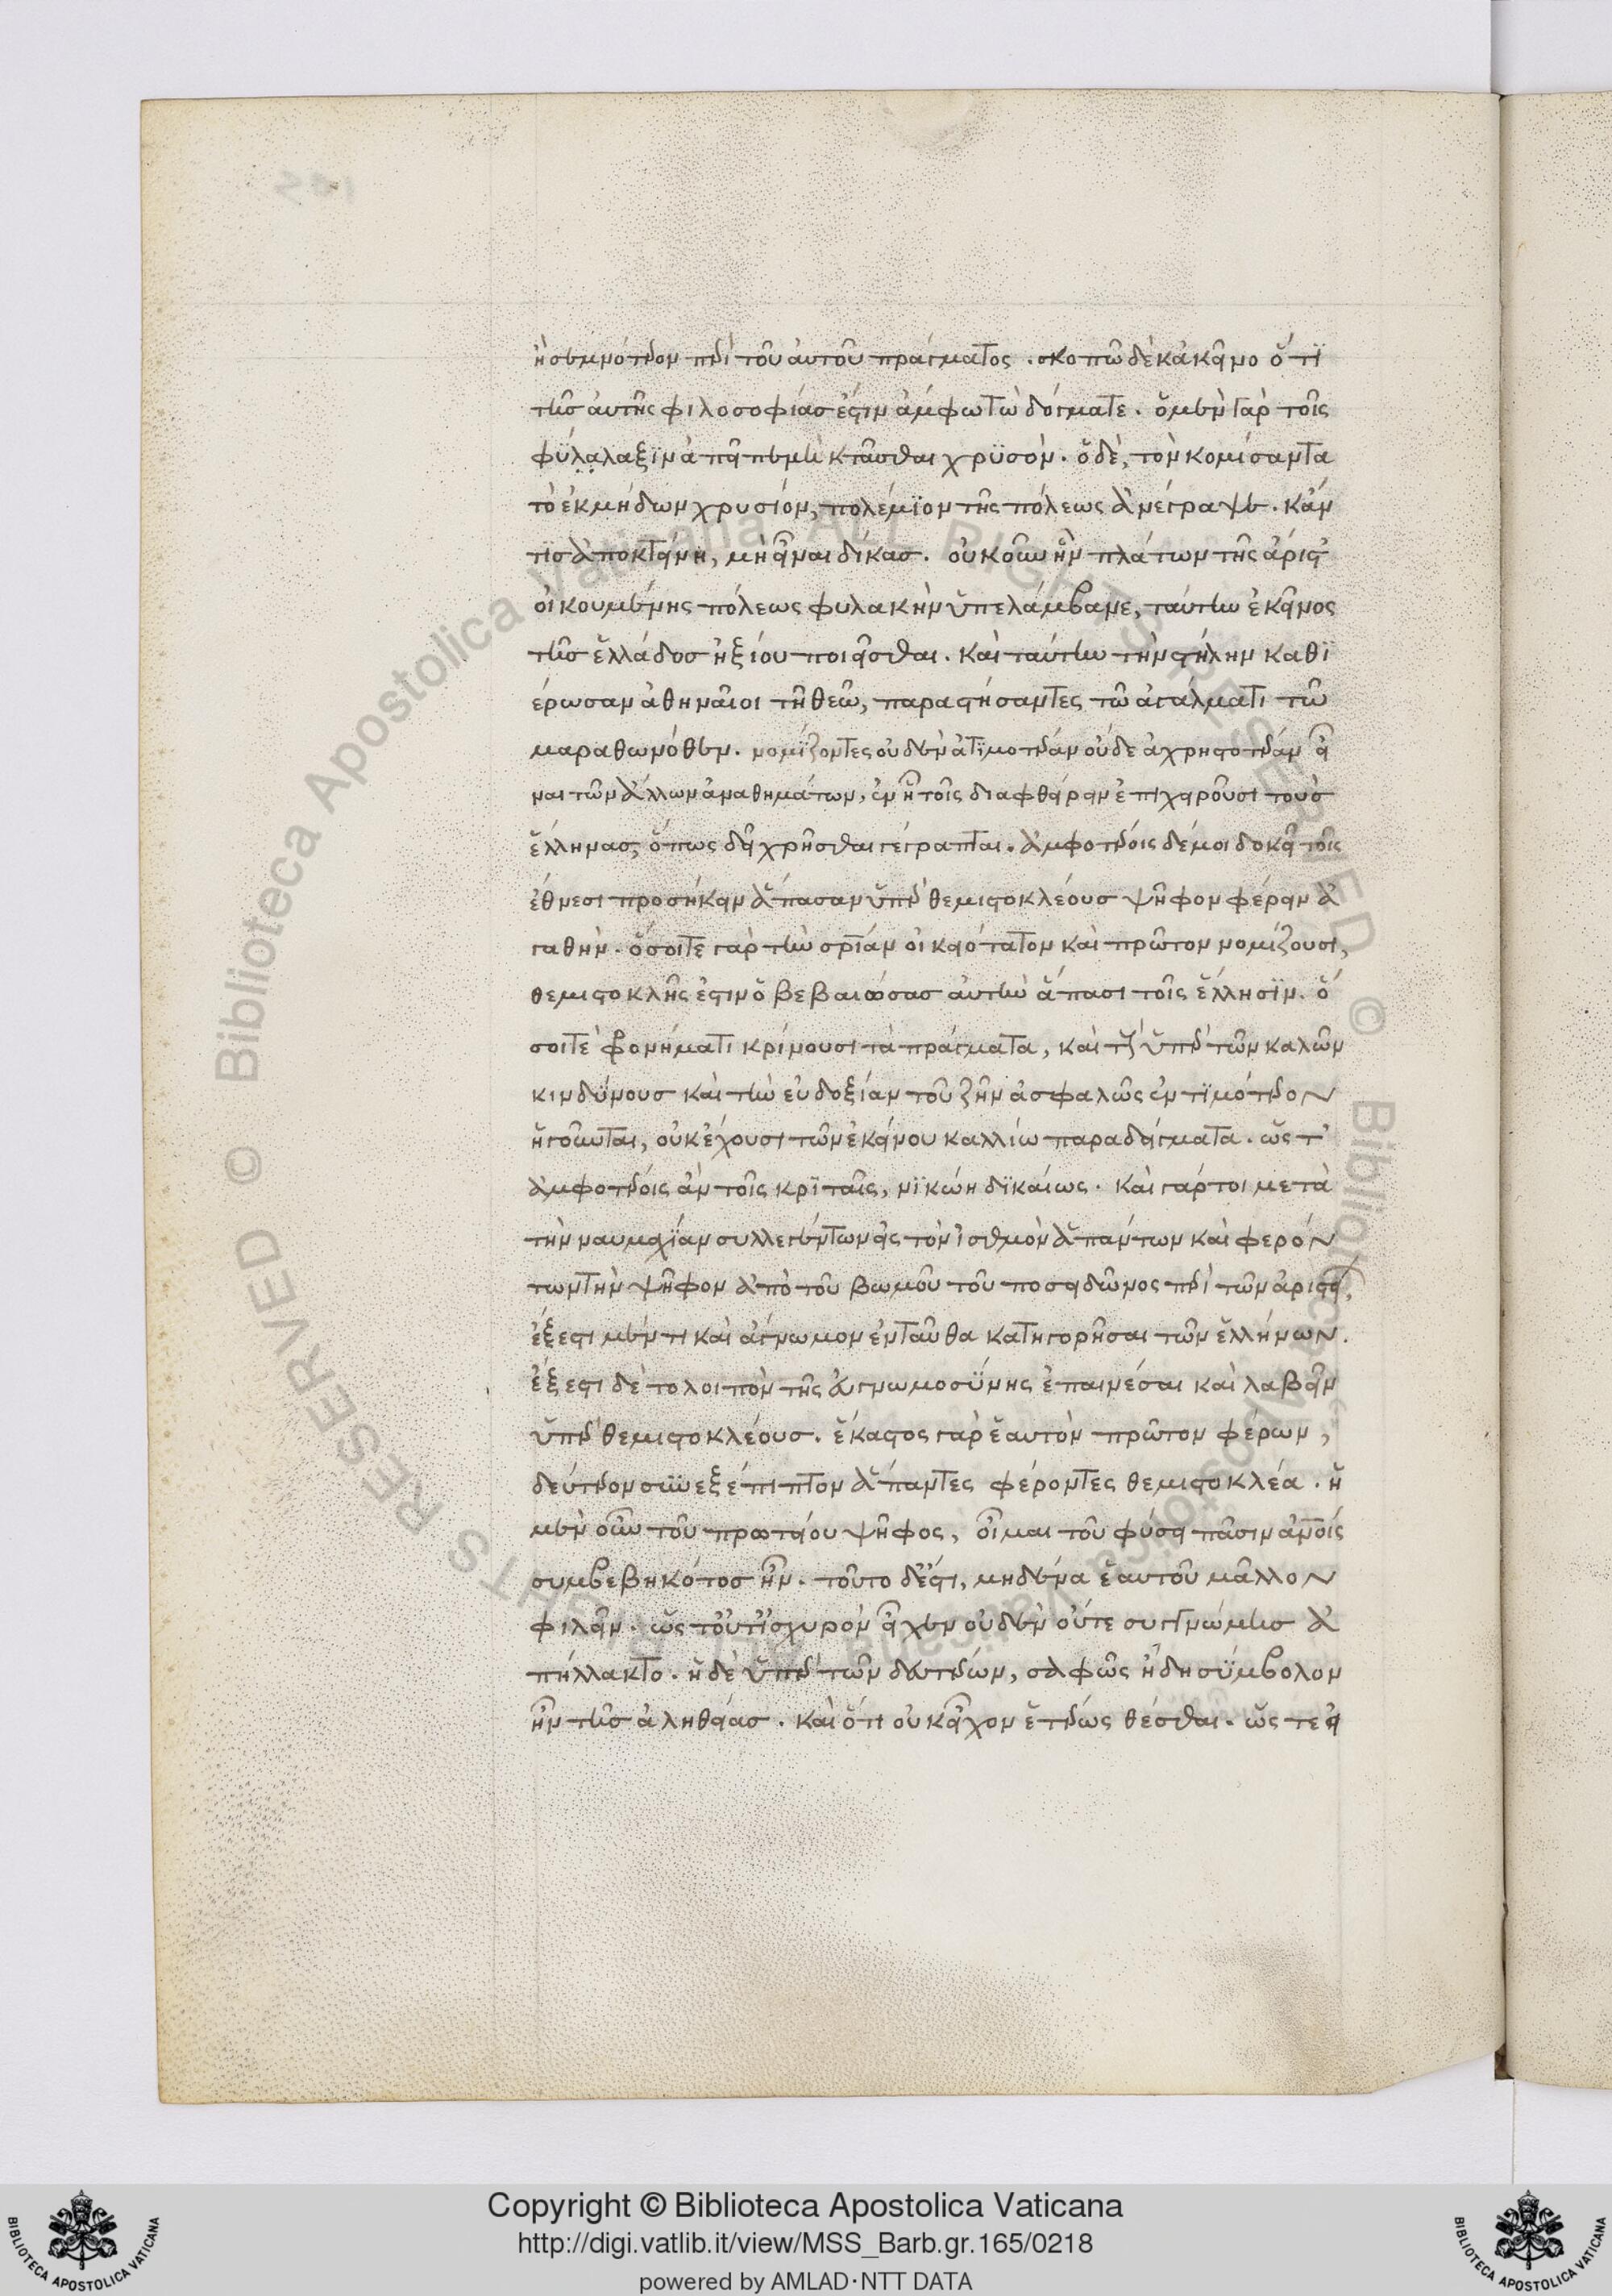 ἢ σεμνότερον περὶ τοῦ αὐτοῦ πράγματος. σκοπῶ δὲ κἀκεῖνο ὅτι
τῆς αὐτῆς φιλοσοφίας ἐστὶν ἀμφωτὼ δόγματε. ὁ μὲν γὰρ τοῖς
φύλαλαξιν ἀπεῖπε μὴ κτᾶσθαι χρυσόν. ὁ δὲ, τὸν κομίσαντα
τὸ ἐκ μήδων χρυσίον, πολέμιον τῆς πόλεως ἀνέγραψε. κἄν
τις ἀποκτείνη, μὴ εἶναι δίκας. οὐκοῦν ἣν πλάτων τῆς ἄριστ'
οἰκουμένης πόλεως φυλακὴν ὑπελάμβανε, ταύτην ἐκεῖνος
τῆς ἑλλάδος ἠξίου ποιεῖσθαι. καὶ ταύτην τὴν στήλην καθι
έρωσαν ἀθηναῖοι τῆ θεῶ, παραστήσαντες τῶ ἀγάλματι τῶ
μαραθωνόθεν. νομίζοντες οὐδὲν ἀτιμοτέραν οὐδε ἀχρηστοτέραν εἶ
ναι τῶν ἄλλων ἀναθημάτων, ἐν ἧ τοῖς διαφθείρειν ἐπιχειροῦσι τοὺς
ἕλληνας, ὅπως δεῖ χρῆσθαι γέγραπται. ἀμφοτέροις δέ μοι δοκεῖ τοῖς
ἔθνεσι προσήκειν ἅπασαν ὑπὲρ θεμιστοκλέους ψῆφον φέρειν ἀ
γαθήν. ὅσοι τε γὰρ τὴν σωτηρίαν οἰκειότατον καὶ πρῶτον νομίζουσι,
θεμιστοκλῆς ἐστιν ὁ βεβαιώσας αὐτὴν ἅπασι τοῖς ἕλλησιν. ὅ
σοι τὲ φρονήματι κρίνουσι τὰ πράγματα, καὶ τοὺς ὑπὲρ τῶν καλῶν
κινδύνους καὶ τὴν εὐδοξίαν τοῦ ζῆν ἀσφαλῶς ἐντιμότερον
ἡγοῦνται, οὐκ ἔχουσι τῶν ἐκείνου καλλίω παραδείγματα. ὥς τ'
ἀμφοτέροις ἂν τοῖς κριταῖς, νικώη δικαίως. καὶ γάρ τοι μετὰ
τὴν ναυμαχίαν συλλεγέντων εἰς τὸν ἰσθμὸν ἁπάντων καὶ φερόν
των τὴν ψῆφον ἀπὸ τοῦ βωμοῦ τοῦ ποσειδῶνος περὶ τῶν ἀριστείων,
ἔξεστι μέν τι καὶ ἄγνωμον ἐνταῦθα κατηγορῆσαι τῶν ἑλλήνων.
ἔξεστι δὲ το λοιπὸν τῆς ἀγνωμοσύνης ἐπαινέσαι καὶ λαβεῖν
ὑπὲρ θεμιστοκλέους. ἕκαστος γὰρ ἑαυτὸν πρῶτον φέρων,
δεύτερον συνεξέπιπτον ἅπαντες φέροντες θεμιστοκλέα. ἡ
μὲν οὖν τοῦ πρωτείου ψῆφος, οἶμαι τοῦ φύσει πᾶσιν ἀνθρώποις
συμβεβηκότος ἦν. τοῦτο δ' ἐστι, μηδένα ἑαυτοῦ μᾶλλον
φιλεῖν. ὥς τ' οὔτ' ἰσχυρὸν εἶχεν οὐδὲν οὔτε συγγνώμης ἀ
πήλλακτο. ἡ δὲ ὑπὲρ τῶν δευτερείων, σαφῶς ἤδη σύμβολον
ἦν τῆς ἀληθείας. καὶ ὅτι οὐκ εἶχον ἑτέρως θέσθαι. ὥς τε εἰ
Copyright © Biblioteca Apostolica Vaticana
http://digi.vatlib.it/view/MSS_Barb.gr.165/0218
powered by AMLAD·NTT DATA